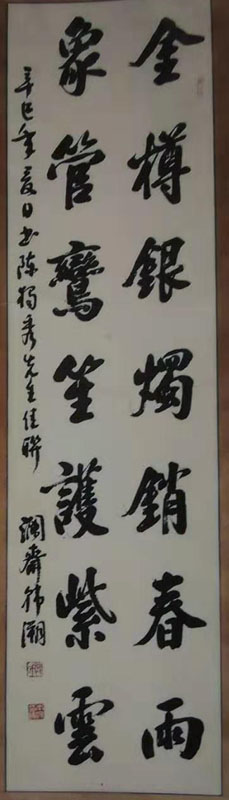 金樽銀燭銷春雨
象管鸞笙護紫雲
辛巳年夏日书陈独秀先生佳联
澜斋韩溯